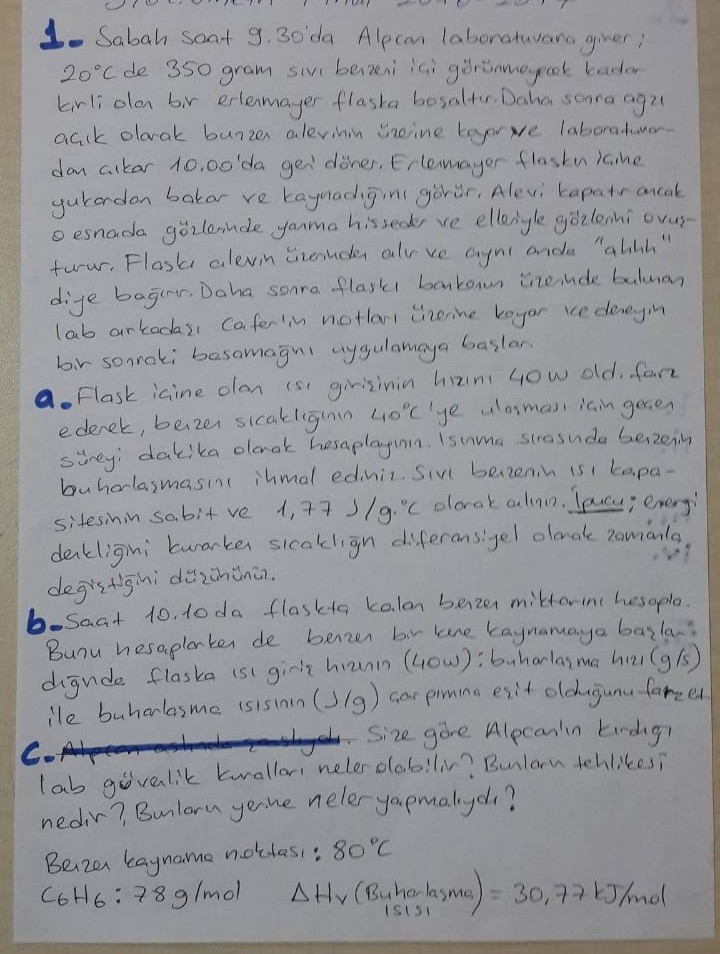 1- Sabah saat 9.30'da Alpcan laboratuvara girer;
20°C de 350 gram sıvı benzeni içi görünmeyecek kadar
kirli olan bir erlenmayer flaska boşaltır. Daha sonra ağzı
açık olarak bunzen alevinin üzerine koyar ve laboratuvar-
dan çıkar 10.00'da geri döner. Erlenmayer flaskın içine
yukardan bakar ve kaynadığını görür. Alevi kapatır ancak
o esnada gözlerinde yanma hisseder ve elleriyle gözlerini ovuş-
turur. Flaskı alevin üzerinden alır ve aynı anda "ahhh"
diye bağırır. Daha sonra flaskı bankonun üzerinde bulunan
lab arkadaşı Cafer'in notları üzerine koyar ve deneyin
bir sonraki basamağını uygulamaya başlar.
a. Flask içine olan ısı girişinin hızını 40W old. farz
ederek, benzen sıcaklığının 40°C'ye ulaşması için geçen
süreyi dakika olarak hesaplayınız. Isınma sırasında benzenin
buharlaşmasını ihmal ediniz. Sıvı benzenin ısı kapa-
sitesinin sabit ve 1,77 J/g.°C olarak alınız. İpucu; enerji
denkliğini kurarken sıcaklığın diferansiyel olarak zamanla
değiştiğini düşününüz.
b- Saat 10.10 da flaskta kalan benzen miktarını hesapla.
Bunu hesaplarken de benzen bir kere kaynamaya başla-
dığında flaska ısı giriş hızının (40w): buharlaşma hızı (g/s)
ile buharlaşma ısısının (J/g) çarpımına eşit olduğunu farzet
c- Size göre Alpcan'ın kırdığı
lab güvenlik kuralları neler olabilir? Bunların tehlikesi
nedir? Bunların yerine neler yapmalıydı?
Benzen kaynama noktası: 80°C
C6H6: 78 g/mol ΔHv (Buharlaşma) = 30,77 kJ/mol
ısısı